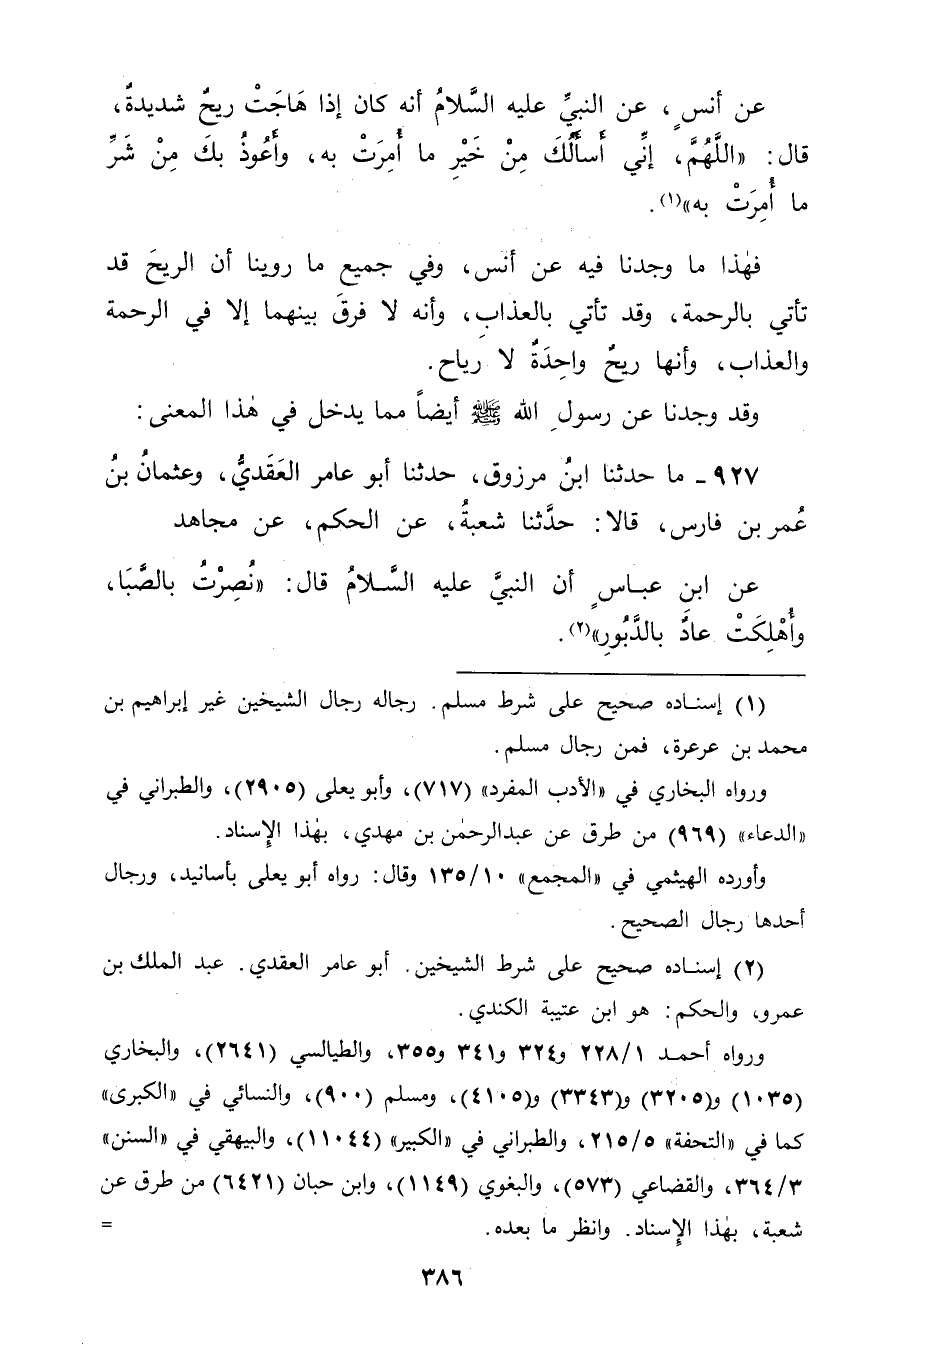 عن أنسٍ، عن النبيِّ عليه السَّلامُ أنه كان إذا هَاجَتْ ريحٌ شديدةٌ،
قال: «اللَّهُمَّ، إنِّي أَسأَلُكَ مِنْ خَيْرِ ما أُمِرَتْ به، وأَعُوذُ بكَ مِنْ شَرِّ
ما أُمِرَتْ به»(١).
فهٰذا ما وجدنا فيه عن أنس، وفي جميع ما روينا أن الريحَ قد
تأتي بالرحمة، وقد تأتي بالعذابِ، وأنه لا فرقَ بينهما إلا في الرحمة
والعذاب، وأنها ريحٌ واحِدَةٌ لا رياح.
وقد وجدنا عن رسولِ الله ﷺ أيضاً مما يدخل في هٰذا المعنى:
٩٢٧ - ما حدثنا ابنُ مرزوق، حدثنا أبو عامر العَقَديُّ، وعثمانُ بنُ
عُمر بن فارس، قالا: حدَّثنا شعبةُ، عن الحكم، عن مجاهد
عن ابن عباسٍ أن النبيَّ عليه السَّلامُ قال: «نُصِرْتُ بالصَّبَا،
وأُهْلِكَتْ عادٌ بالدَّبُورِ»(٢).
(١) إسناده صحيح على شرط مسلم. رجاله رجال الشيخين غير إبراهيم بن
محمد بن عرعرة، فمن رجال مسلم.
ورواه البخاري في «الأدب المفرد» (٧١٧)، وأبو يعلى (٢٩٠٥)، والطبراني في
«الدعاء» (٩٦٩) من طرق عن عبدالرحمٰن بن مهدي، بهٰذا الإِسناد.
وأورده الهيثمي في «المجمع» ١٣٥/١٠ وقال: رواه أبو يعلى بأسانيد، ورجال
أحدها رجال الصحيح.
(٢) إسناده صحيح على شرط الشيخين. أبو عامر العقدي. عبد الملك بن
عمرو، والحكم: هو ابن عتيبة الكندي.
ورواه أحمد ٢٢٨/١ و٣٢٤ و٣٤١ و٣٥٥، والطيالسي (٢٦٤١)، والبخاري
(١٠٣٥) و(٣٢٠٥) و(٣٣٤٣) و(٤١٠٥)، ومسلم (٩٠٠)، والنسائي في «الكبرى»
كما في «التحفة» ٢١٥/٥، والطبراني في «الكبير» (١١٠٤٤)، والبيهقي في «السنن»
٣٦٤/٣، والقضاعي (٥٧٣)، والبغوي (١١٤٩)، وابن حبان (٦٤٢١) من طرق عن
شعبة، بهٰذا الإِسناد. وانظر ما بعده. =
٣٨٦